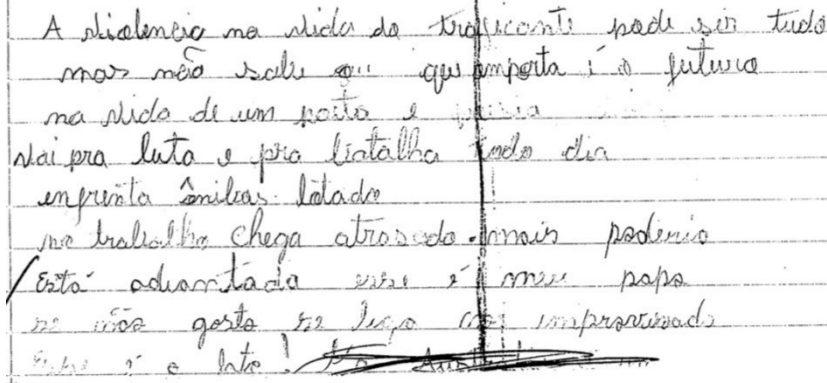 A violencia na vida do traficante pode ser tudo
mas não sabe que importa é o futuro
na vida de um poeta e
Vai pra luta e pra batalha todo dia
enfrenta ônibus lotado
no trabalho chega atrasado. mais poderia
Está adiantada esse é meu papo
se não gosto se liga no improvisado
Esse é o